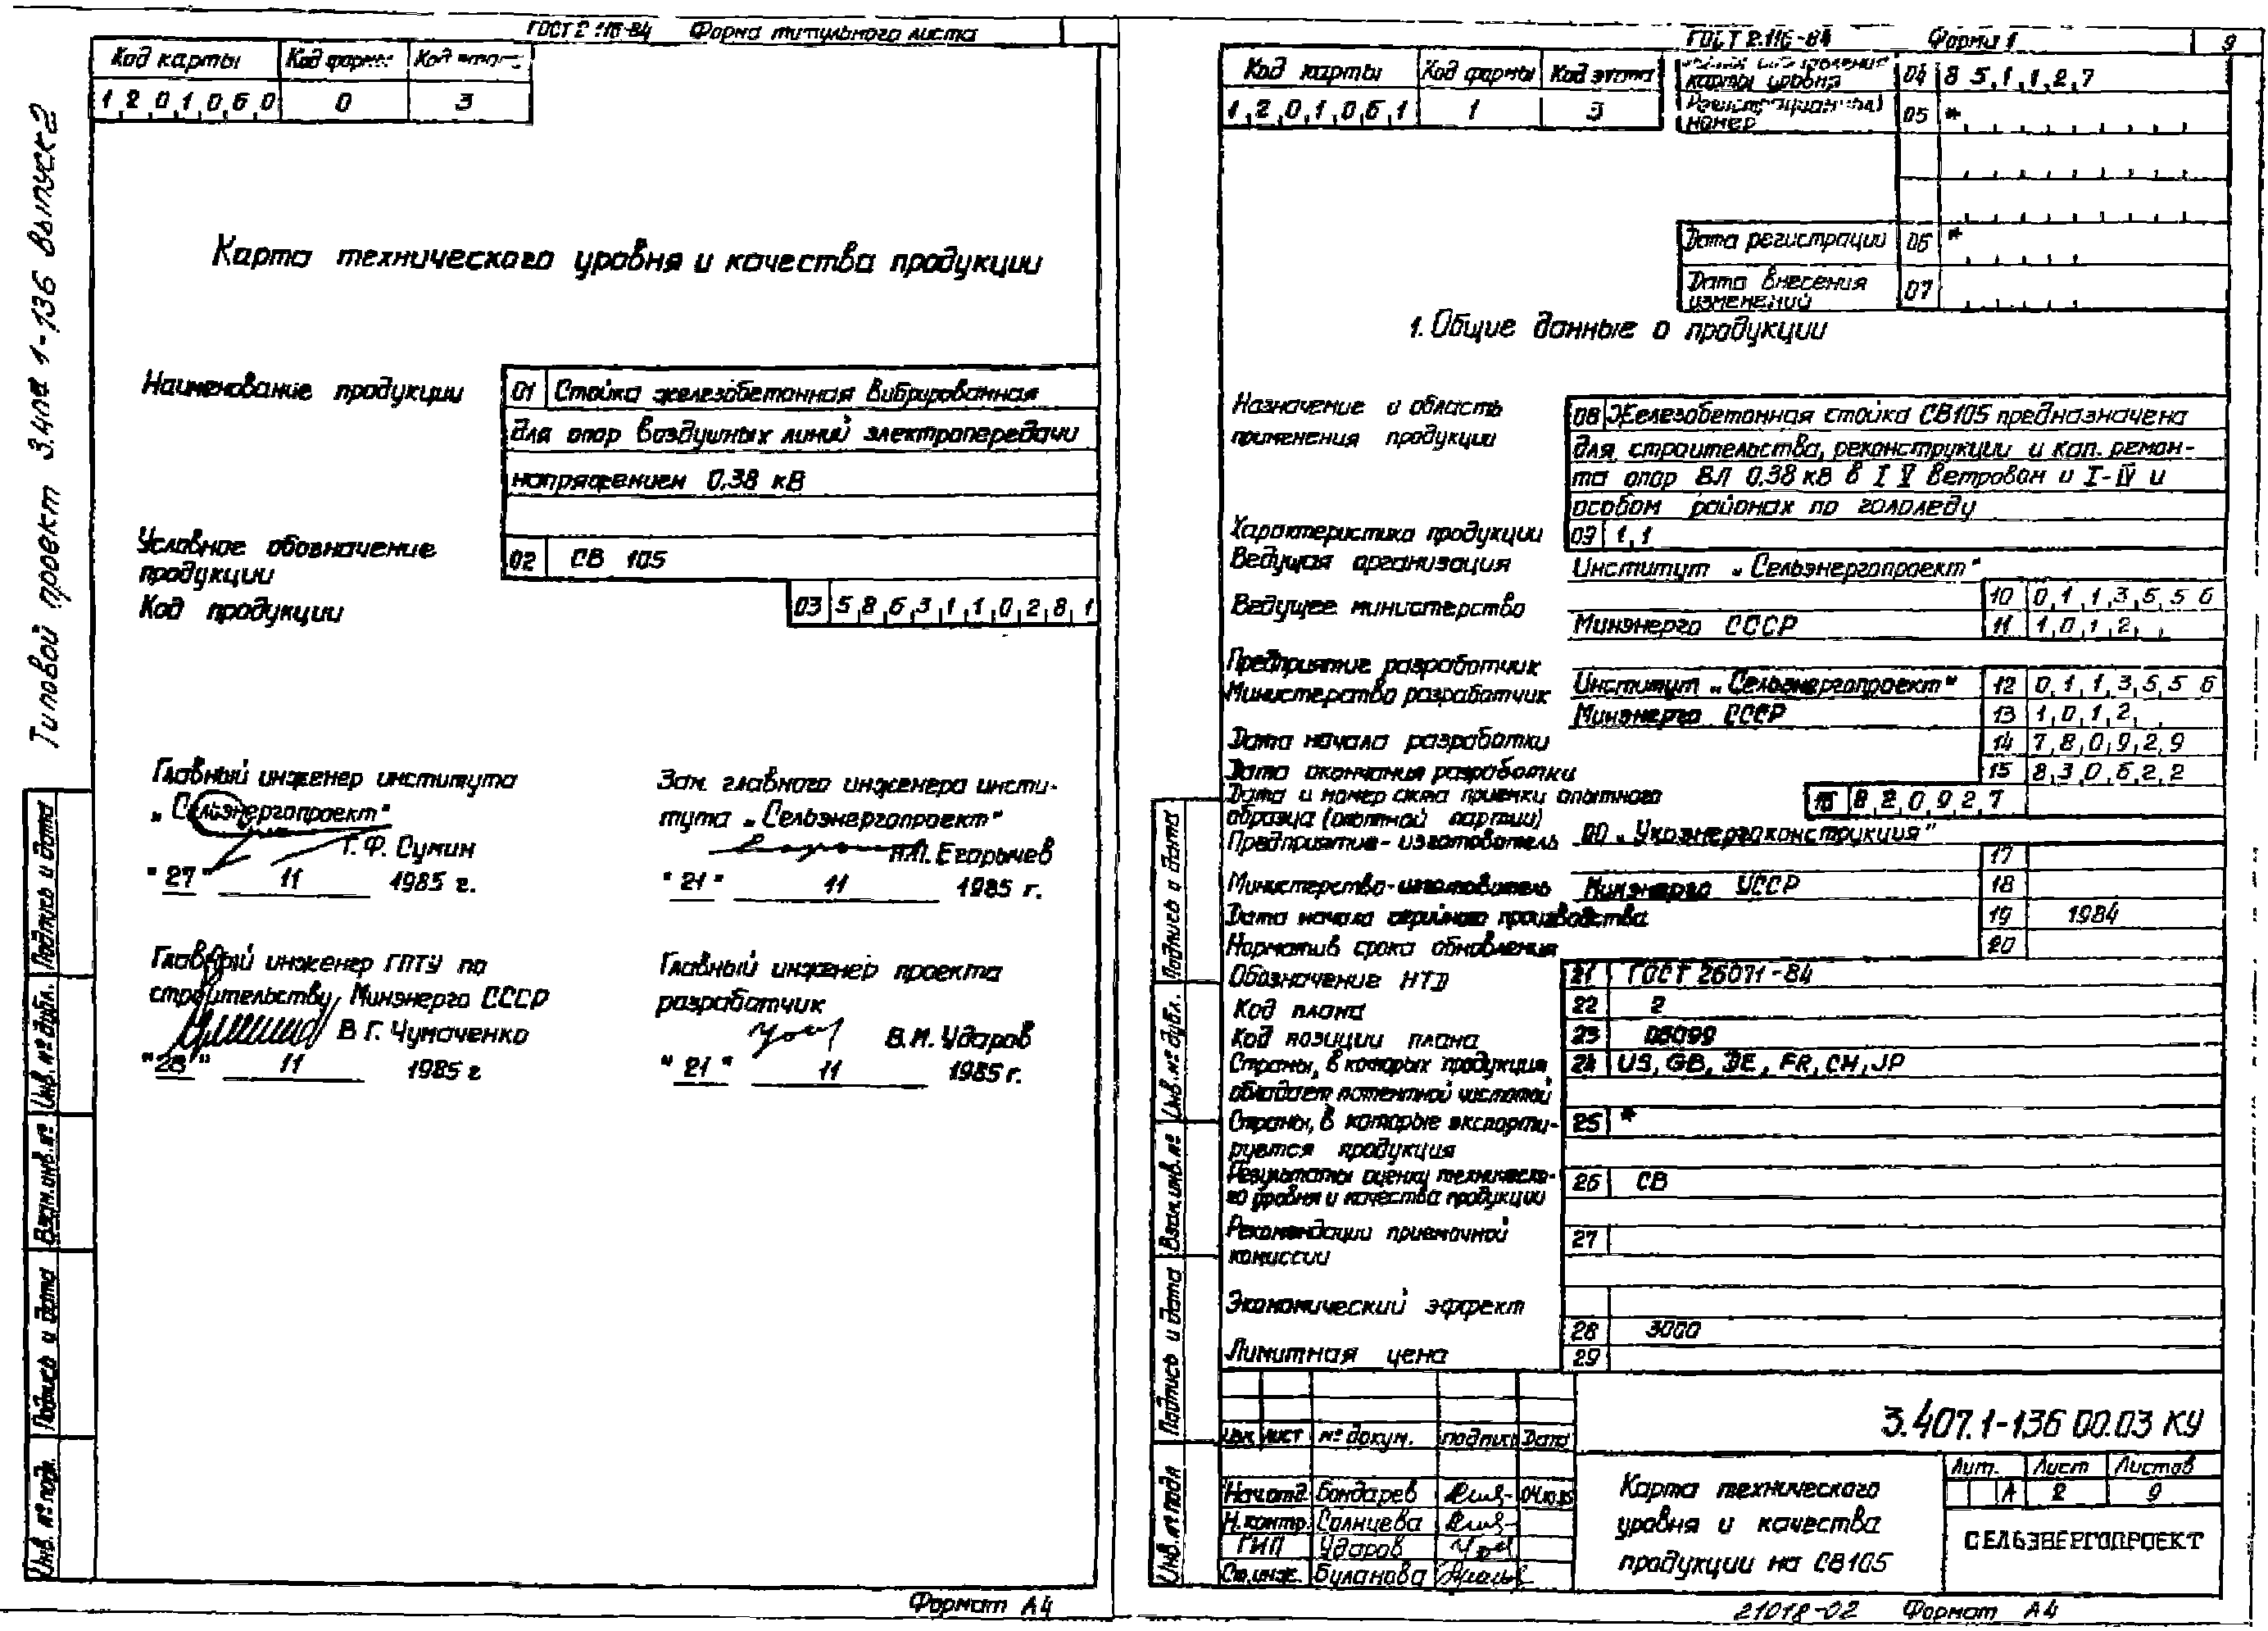 ГОСТ 2.116-84 Форма титульного листа
Код карты Код формы Код этапа
1201060 0 3
Типовой проект 3.407.1-136 Выпуск 2
Карта технического уровня и качества продукции
Наименование продукции
01 Стойка железобетонная вибрированная
для опор воздушных линий электропередачи
напряжением 0,38 кВ
Условное обозначение
продукции
02 СВ 105
Код продукции
03 5863110281
Главный инженер института
„Сельэнергопроект"
Г.Ф. Сумин
"27" 11 1985 г.
Зам. главного инженера инсти-
тута „Сельэнергопроект"
Егорычев
"21" 11 1985 г.
Главный инженер ГПТУ по
строительству Минэнерго СССР
В.Г. Чумаченко
"28" 11 1985 г
Главный инженер проекта
разработчик
В.М. Ударов
"21" 11 1985 г.
Подпись и дата
Инв. № дубл.
Взам. инв. №
Подпись и дата
Инв. № подл.
Формат А4
ГОСТ 2.116-84 Форма 1 9
Код карты Код формы Код этапа
1,2,0,1,0,6,1 1 3
карты уровня 04 8 5,1,1,2,7
Регистрационный
номер 05 *
Дата регистрации 06 *
Дата внесения
изменений 07
1. Общие данные о продукции
Назначение и область
применения продукции
08 Железобетонная стойка СВ105 предназначена
для строительства, реконструкции и кап. ремон-
та опор ВЛ 0,38 кВ в I V ветровом и I-IV и
особом районах по гололеду
Характеристика продукции 09 1,1
Ведущая организация Институт „Сельэнергопроект"
10 0,1,1,3,5,5 6
Ведущее министерство Минэнерго СССР 11 1,0,1,2,
Предприятие разработчик Институт „Сельэнергопроект" 12 0,1,1,3,5,5 6
Министерство разработчик Минэнерго СССР 13 1,0,1,2,
Дата начала разработки 14 7,8,0,9,2,9
Дата окончания разработки 15 8,3,0,6,2,2
Дата и номер акта приемки опытного
образца (опытной партии) 16 8,2,0,9,2,7
Предприятие-изготовитель ПО „Укрэнергоконструкция"
17
Министерство-изготовитель Минэнерго УССР 18
Дата начала серийного производства 19 1984
Норматив срока обновления 20
Обозначение НТД 21 ГОСТ 26071-84
Код плана 22 2
Код позиции плана 23 05099
Страны, в которых продукция
обладает патентной чистотой
24 US, GB, DE, FR, CH, JP
Страны, в которые экспорти-
руется продукция
25 *
Результаты оценки техническо-
го уровня и качества продукции
26 СВ
Рекомендации приемочной
комиссии
27
Экономический эффект
28 3000
Лимитная цена 29
3.407.1-136 00.03 КУ
Изм. Лист № докум. Подпись Дата
Нач.отд. Бондарев 04.10.85
Н.контр. Солнцева
ГИП Ударов
Ст.инж. Буланова
Карта технического
уровня и качества
продукции на СВ105
Лит. Лист Листов
А 2 9
СЕЛЬЭНЕРГОПРОЕКТ
Подпись и дата
Инв. № дубл.
Взам. инв. №
Подпись и дата
Инв. № подл
21018-02 Формат А4